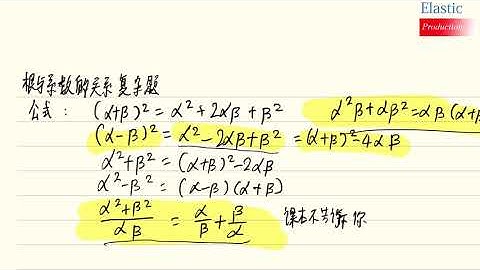 Elastic
Production
根与系数的关系复杂题
公式: (α+β)² = α²+2αβ+β² α²β+αβ²=αβ(α+β
(α-β)² = α²-2αβ+β² = (α+β)²-4αβ
α²+β² = (α+β)²-2αβ
α²-β² = (α-β)(α+β)
(α²+β²)/(αβ) = α/β + β/α 课本不告诉你